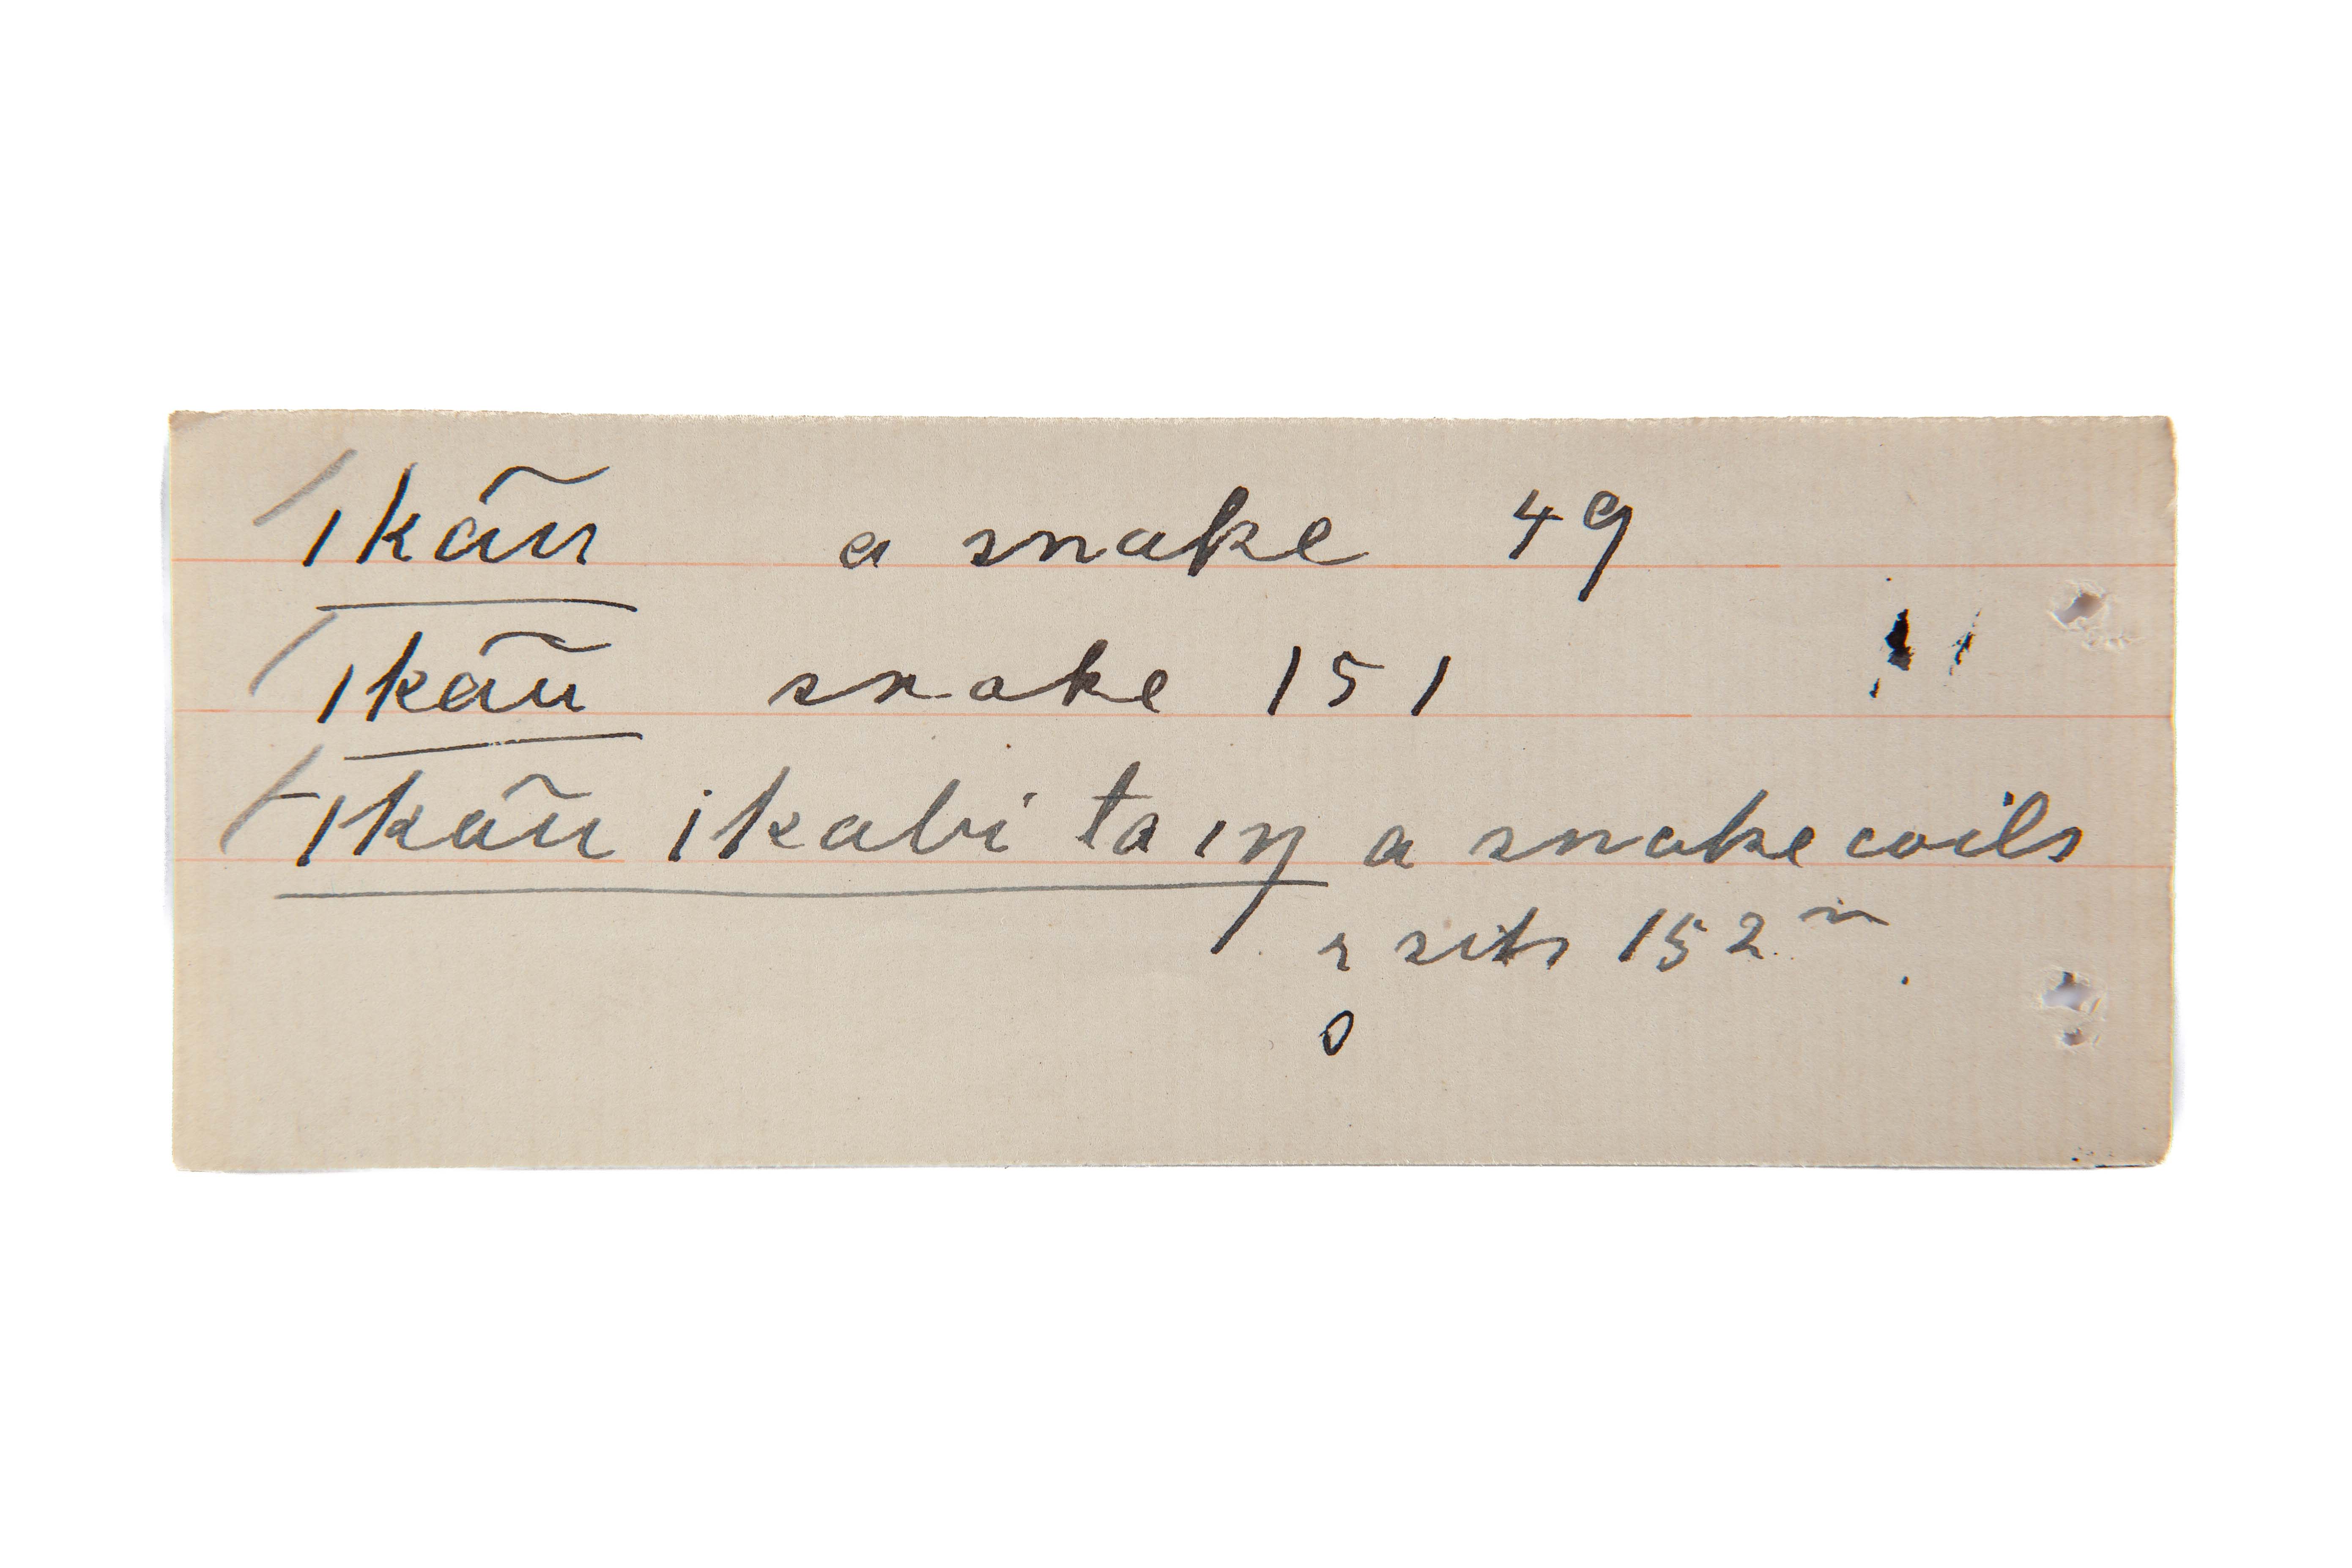 ıkãu a snake 49
ıkãu snake 151
ıkãu ikabi ta ıŋ a snake coils
& sits 152
o